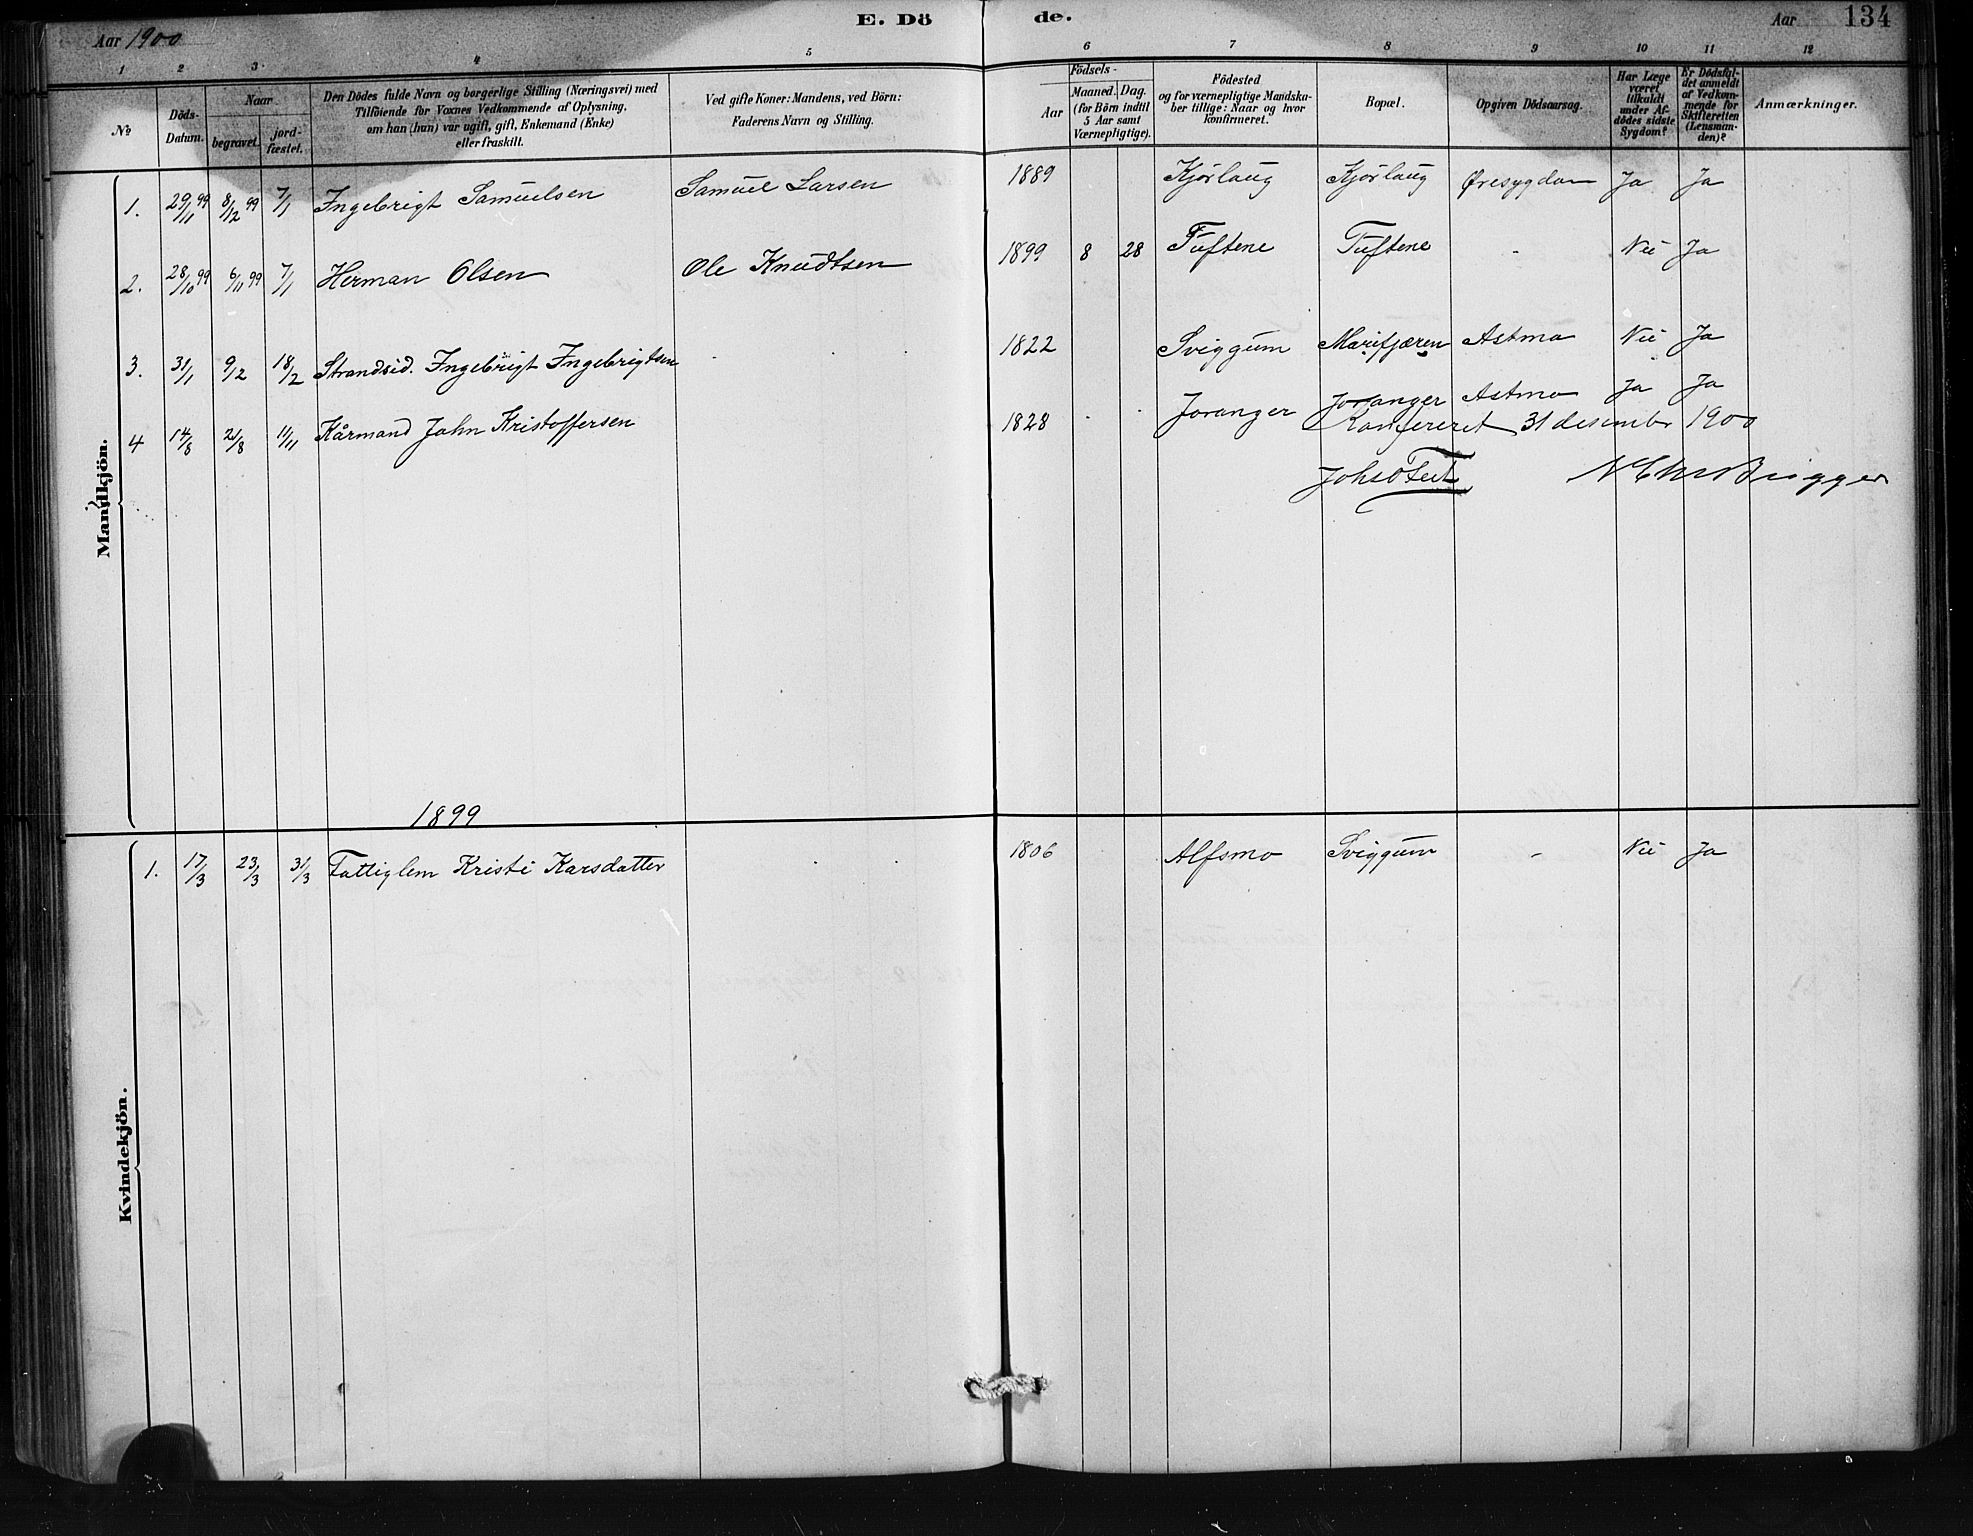 E. Dö de.
Aar 1900 Aar 134
1 2 3 4 5 6 7 8 9 10 11 12
№ Döds-Datum. Naar begravet. jord-fæstet. Den Dödes fulde Navn og borgerlige Stilling (Næringsvei) med Tilföiende for Voxnes Vedkommende af Oplysning, om han (hun) var ugift, gift, Enkemand (Enke) eller fraskilt. Ved gifte Koner: Mandens, ved Börn: Faderens Navn og Stilling. Födsels- Aar Maaned. Dag. (for Börn indtil 5 Aar samt Værnepligtige). Födested og for værnepligtige Mandskaber tillige: Naar og hvor konfirmeret. Bopæl. Opgiven Dödsaarsag. Har Læge været tilkaldt under Afdödes sidste Sygdom? Er Dödsfaldet anmeldt af Vedkommende for Skifteretten (Lensmanden)? Anmærkninger.
Mandkjön.
1. 29/11 99 8/12 99 7/1 Ingebrigt Samuelsen Samuel Larsen 1889 Kjørlaug Kjørlaug Øresygdom Ja Ja
2. 28/10 99 6/11 99 7/1 Herman Olsen Ole Knudtsen 1899 8 28 Tuftene Tuftene - Nei Ja
3. 31/1 9/2 18/2 Strandsid. Ingebrigt Ingebrigtsen 1822 Sviggum Marifjæren Astma Nei Ja
4 14/8 21/8 11/11 Kårmand John Kristoffersen 1828 Joranger Joranger Astma Ja Ja
Konfereret 31 desember 1900
1899
Kvindekjön.
1. 17/3 23/3 31/3 Fattiglem Kristi Karsdatter 1806 Alfsmo Sviggum - Nei Ja